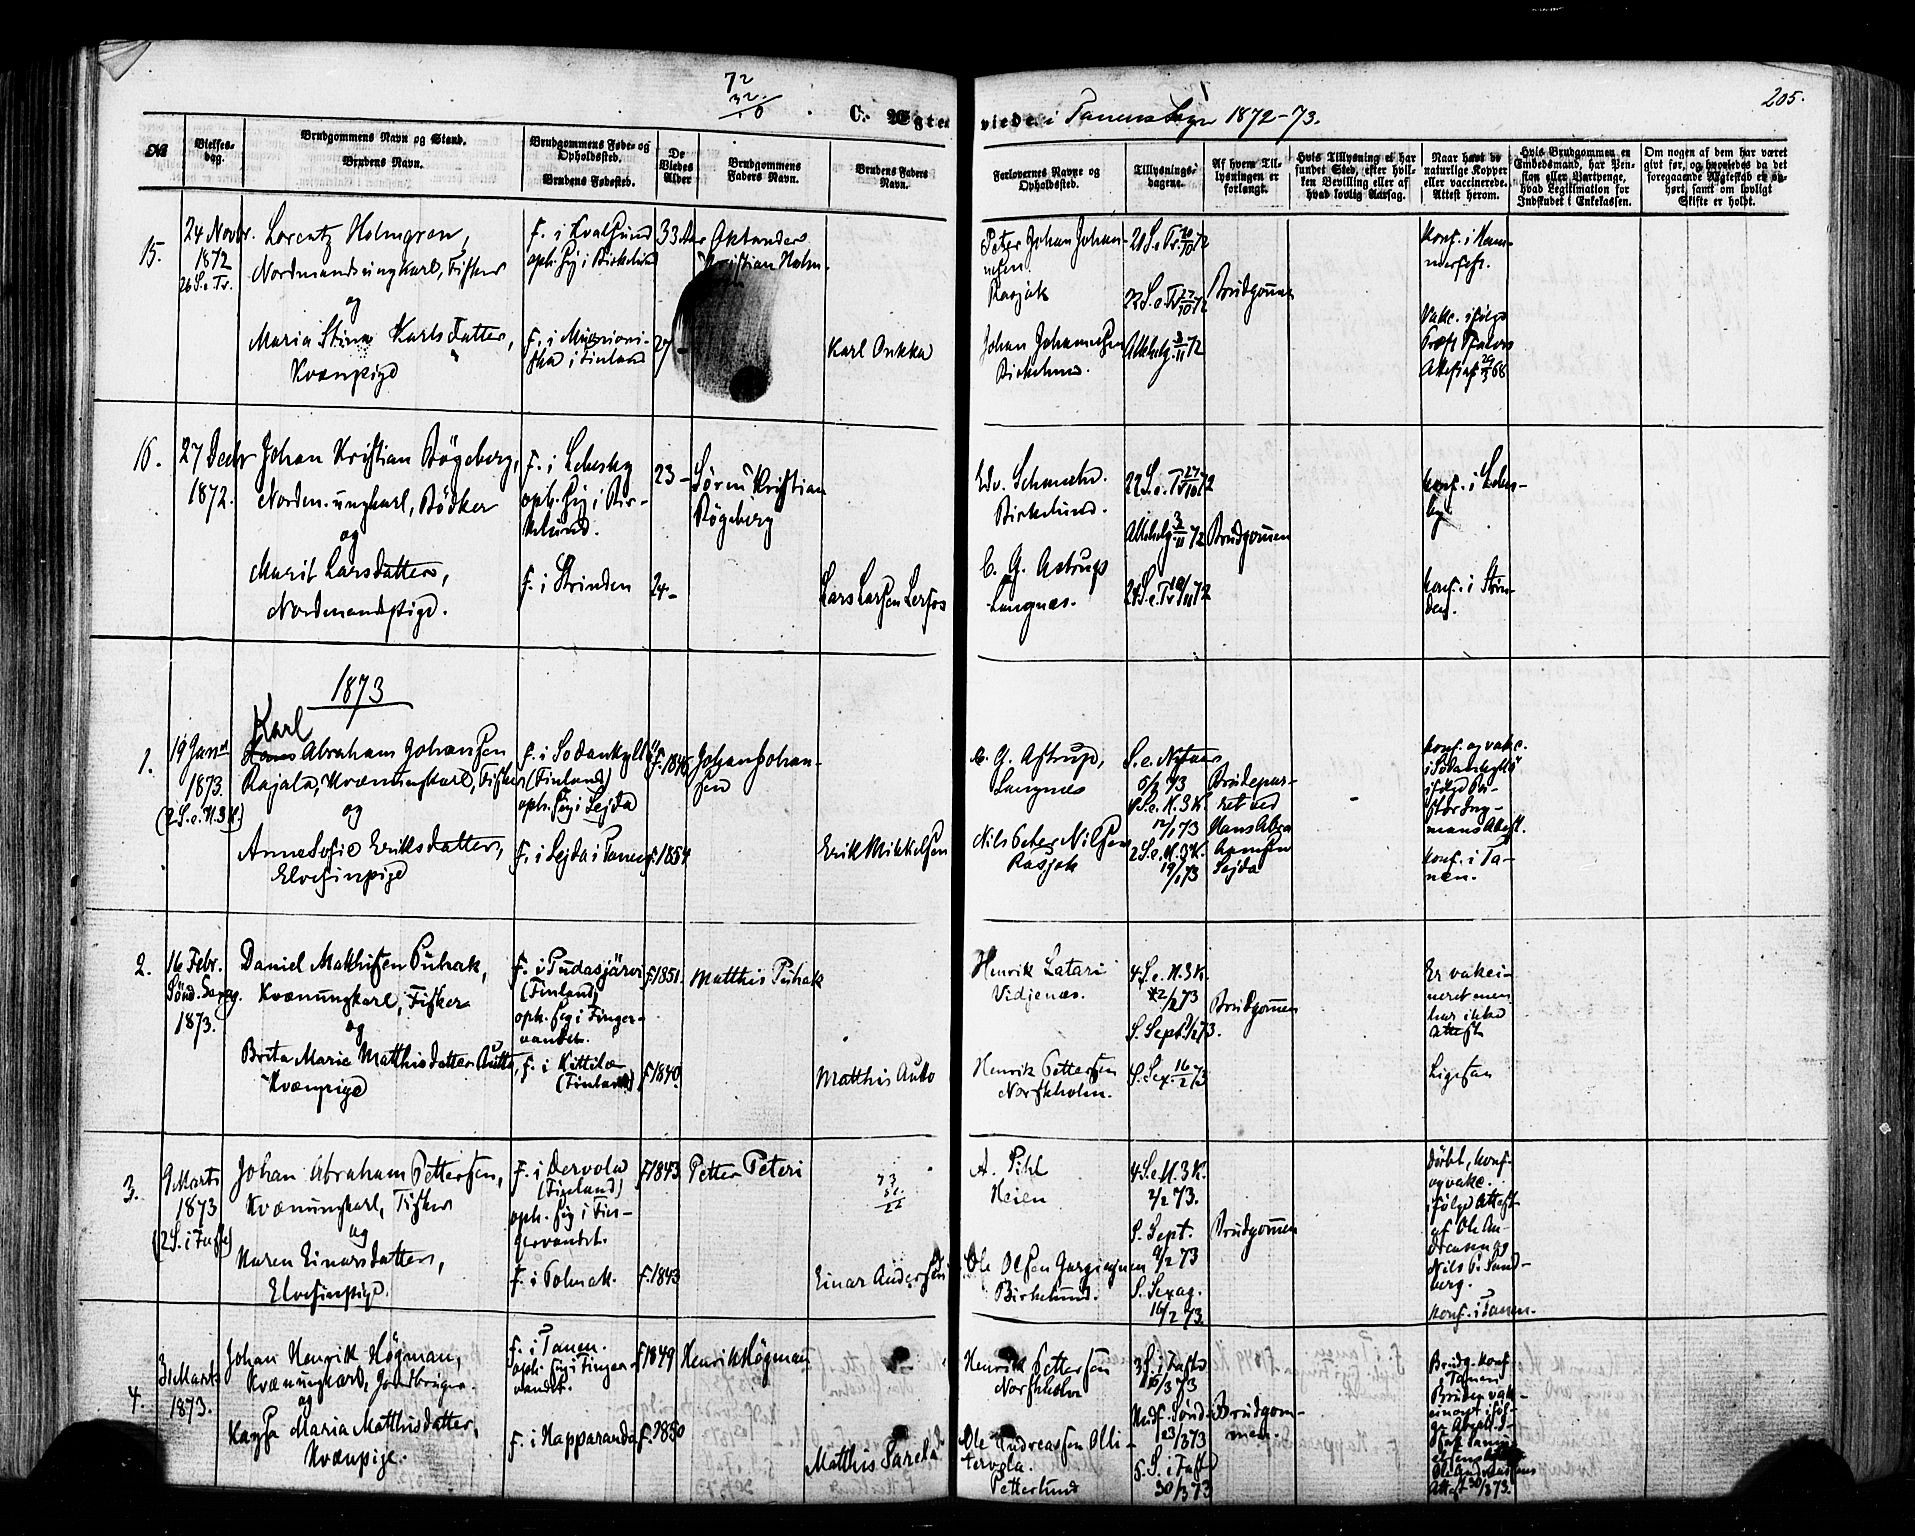 72
32
0
C. Ægteviede i Tanens Sogn 1872-73.
205.
No
Vielses-dag.
Brudgommens Navn og Stand.
Brudens Navn.
Brudgommens Føde- og Opholdssted.
Brudens Fødested.
De Viedes Alder
Brudgommens Faders Navn.
Brudens Faders Navn.
Forlovernes Navne og Opholdssted.
Tillysnings-dagene.
Af hvem Tillysningen er forlangt.
Hvis Tillysning ei har fundet Sted, efter hvilken Bevilling eller af hvad lovlig Aarsag.
Naar havt de naturlige Kopper eller vaccinerede. Attest herom.
Hvis Brudgommen en Embedsmand, har Pension eller Vartpenge, hvad Legitimation for Indskudet i Enkekassen.
Om nogen af dem har været givt før, og hvorledes da det foregaaende Ægteskab er ophørt, samt om lovligt Skifte er holdt.
15.
24 Novbr.
1872
26 S. e. Tr.
Lorentz Holmgren,
Nordmandsungkarl, Fisker
og
Maria Stina Karlsdatter,
Kvænpige
f. i Kvalsund
oph. sig i Birkelund
f. i Muonioniska i Finland
33 Aar
27 -
Kristian Holm.
Karl Onkka
Peter Johan Johannesen
Rasjok
Johan Johannesen
Birkelund.
21 S. e. Tr. 20/10 72
22 S. e. Tr 27/10 72
Allehelg. 3/11 72
Brudgommen
Konf. i Hammerfest.
Vakc. ifølge
16.
27 Decbr
1872.
Johan Kristian Bøgeberg,
Nordm. ungkarl, Bødker
og
Marit Larsdatter,
Nordmandspige.
f. i Lebesby
oph. sig i Birkelund.
f. i Strinden
23 -
24 -
Sören Kristian
Bøgeberg
Lars Larsen Lerfos
Birkelund.
C. G. Astrup
Langnæs.
22 S. e. Tr 27/10 72
Allehelg 3/11 72
24 S. e. Tr 10/11 72
Brudgommen
Konf. i Lebesby
Konf. i Strinden.
1873
1.
19 Januar
1873.
(2 S. e. H. 3 K.)
Karl
Hans Abraham Johansen
Rajala, Kvænungkarl, Fisker
og
Anne Sofie Eriksdatter,
Elvefinpige
f. i Sodankylä
(Finland)
oph. sig i Sejda
f. i Sejda i Tanen
f. 1846
f. 1854
Johan Johansen
Erik Mikkelsen
C. G. Astrup,
Langnæs
Nils Peter Nilsen
Rasjok
S. e. Nytaar
5/1 73
1 S. e. H. 3 K.
12/1 73
2 S. e. H. 3 K.
19/1 73
Brudeparret ved
Hans Abra
Sejda
Konf. og vakc.
i Sodankylä
ifølge Pastor
Attest.
Konf. i Tanen.
2.
16 Febr.
Sönd. Sexag.
1873.
Daniel Matthisen Puhak,
Kvænungkarl, Fisker
og
Brita Maria Matthisdatter Autto,
Kvænpige
f. i Pudasjärvi
(Finland)
oph. sig i Fingervandet.
f. i Kittilæ
(Finland)
f. 1851.
f. 1840.
Matthis Puhak
Matthis Auto
Henrik Latari
Vidjenæs.
Henrik Pettersen
Norskholm.
4 S. e. H. 3 K.
2/2 73
S. Sept. 9/2 73.
S. Sex. 16/2 73
Brudgommen
Er vakcineret men
har ikke
attest
Ligesaa
3.
9 Marts
1873
(2 S. i Faste)
Johan Abraham Pettersen,
Kvænungkarl, Fisker
og
Karen Einarsdatter,
Elvefinpige.
f. i Tervola
(Finland)
oph. sig i Fingervandet.
f. i Polmak.
f. 1843.
f. 1843
Petter Peteri
73
51
22
Einar Andersen
A. Pihl
Heien
Ole Olsen
Birkelund.
4 S. e. H. 3 K.
2/2 73.
S. Sept.
9/2 73
S. Sexag.
16/2 73
Brudgommen
Döbt, konf.
og vakc.
ifølge Attest
af Ole Andreasen og
Nils P. Sandberg.
Konf. i Tanen.
4.
31 Marts
1873.
Johan Henrik Högman,
Kvænungkarl, Jordbruger
og
Kaysa Maria Matthisdatter,
Kvænpige.
f. i Tanen.
oph. sig i Fingervandet.
f. i Happaranda
f. 1849
f. 1850
Henrik Högman
Matthis Sarela
Henrik Pettersen
Norskholm
Ole Andreassen Ollitervola.
Petterlund
3 S. i Faste
16/3 73
Midf. Sönd
23/3 73
5. S. i Faste
30/3 73
Brudgommen.
Brudg. konf.
i Tanen
Bruden vakcineret
Attest 30/3 73.